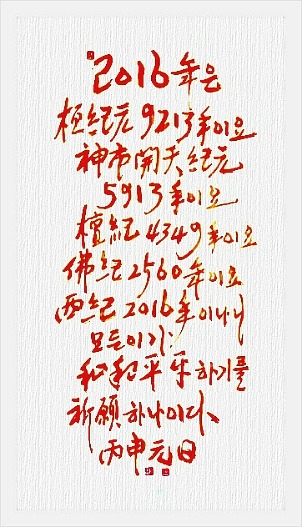 2016年은
桓紀元 9213年이요
神市開天紀元
5913年이요
檀紀 4349年이요
佛紀 2560年이요
西紀 2016年이니
모든이가
和和平平하기를
祈願하나이다
丙申元日